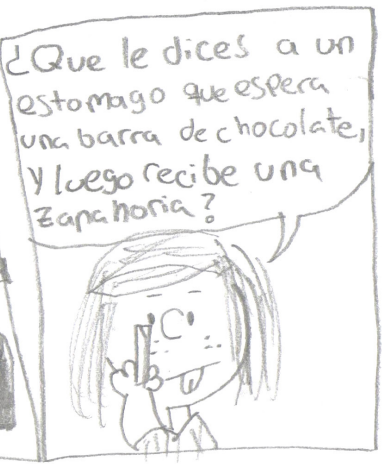 ¿Que le dices a un
estomago que espera
una barra de chocolate,
y luego recibe una
zanahoria?